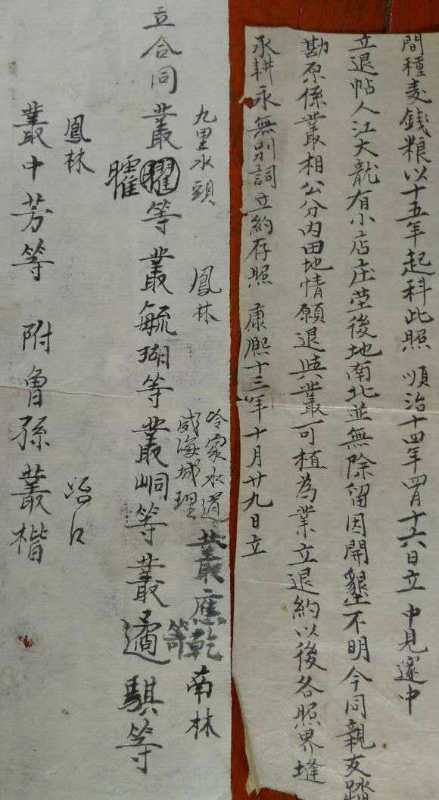 間種麦錢粮以十五年起科此照 順治十四年四月十六日立 中見遂中
立退帖人江大龍有小店庄茔後地南北並無除留因開墾不明今同親友踏
勘原係叢相公分内田地情愿退與叢可植為業立退約以後各照界堘
承耕永無別詞立約存照 康熙十三年十月廿九日立
九里水頭 鳳林 冷家水道
威海城裡
叢應乾等 南林
立合同叢曜等叢毓瑚等叢峒等叢遹騏等
曜
鳳林
叢中芳等 附魯孫叢楷